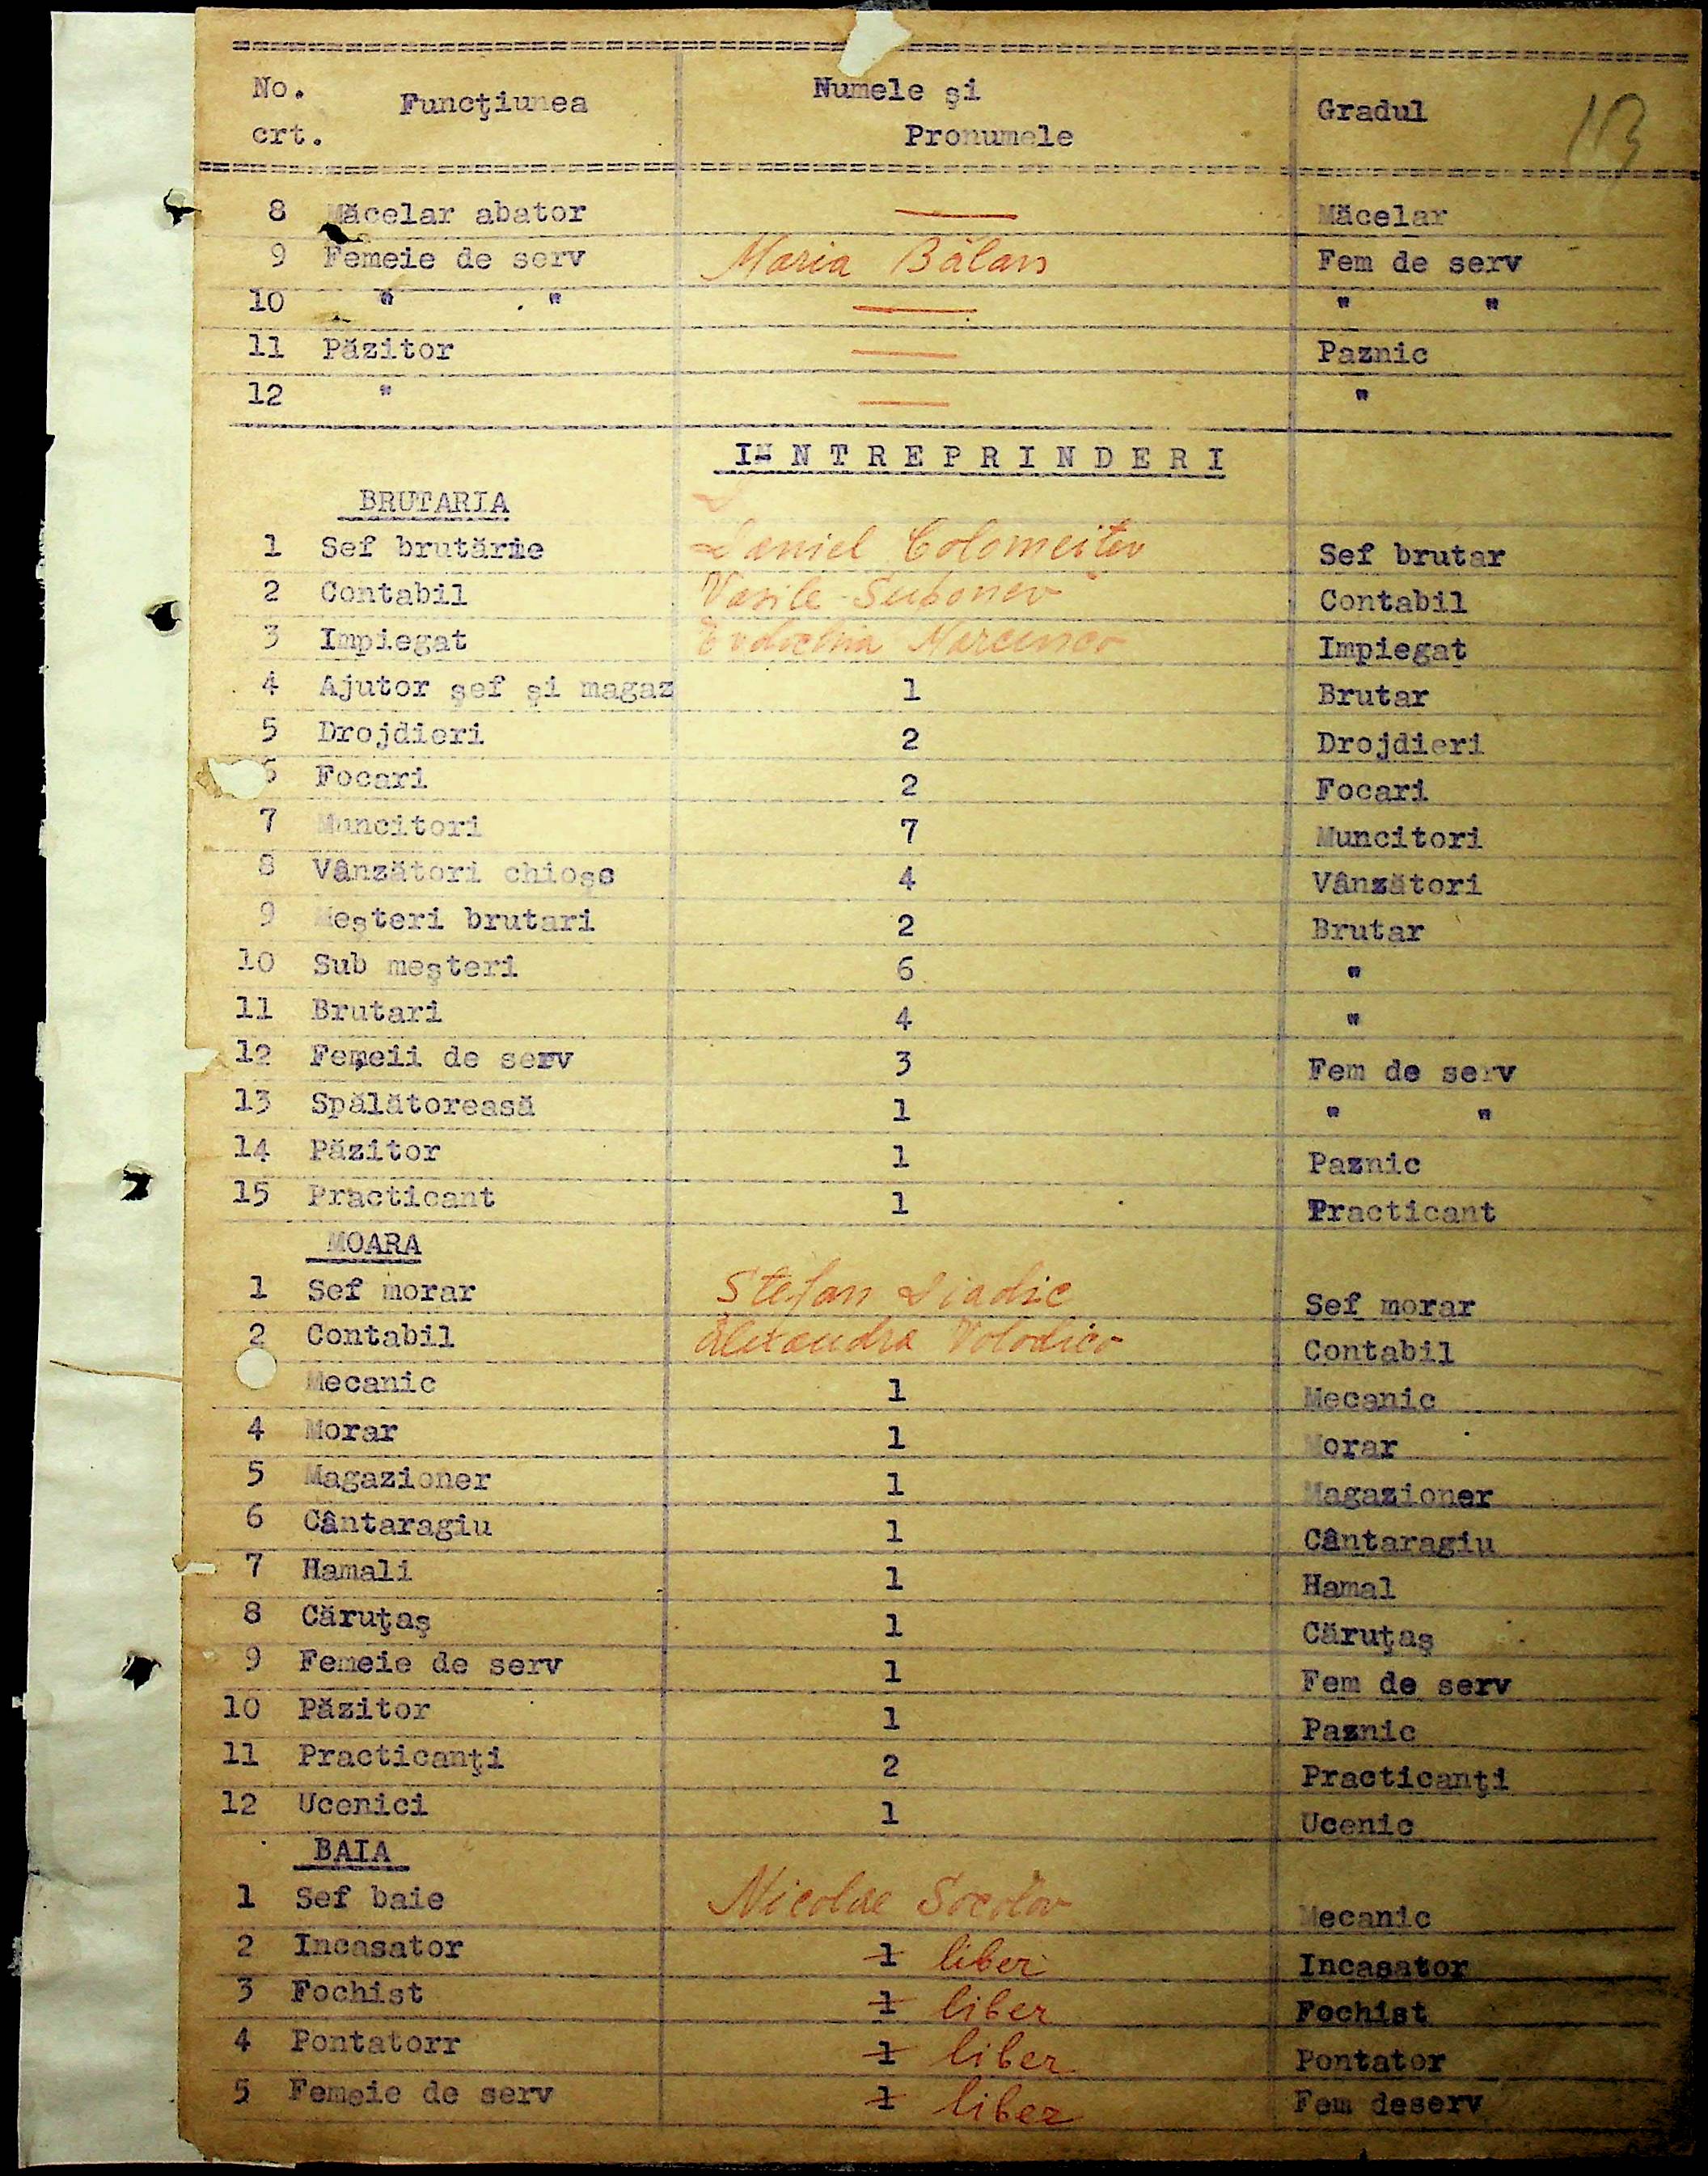 No. crt. Funcţiunea Numele şi Pronumele Gradul 13
8 Măcelar abator — Măcelar
9 Femeie de serv Maria Bălan Fem de serv
10 " " — " "
11 Păzitor — Paznic
12 " — "
I N T R E P R I N D E R I
BRUTARIA
1 Sef brutărie Daniel Colomeițev Sef brutar
2 Contabil Vasile Contabil
3 Impiegat Evdochia Marcenco Impiegat
4 Ajutor şef şi magaz 1 Brutar
5 Drojdieri 2 Drojdieri
6 Focari 2 Focari
7 Muncitori 7 Muncitori
8 Vânzători chioşc 4 Vânzători
9 Meşteri brutari 2 Brutar
10 Sub meşteri 6 "
11 Brutari 4 "
12 Femeii de serv 3 Fem de serv
13 Spălătoreasă 1 " "
14 Păzitor 1 Paznic
15 Practicant 1 Practicant
MOARA
1 Sef morar Stefan Diadic Sef morar
2 Contabil Alexandra Volodico Contabil
Mecanic 1 Mecanic
4 Morar 1 Morar
5 Magazioner 1 Magazioner
6 Cântaragiu 1 Cântaragiu
7 Hamali 1 Hamal
8 Căruţaş 1 Căruţaş
9 Femeie de serv 1 Fem de serv
10 Păzitor 1 Paznic
11 Practicanţi 2 Practicanţi
12 Ucenici 1 Ucenic
BAIA
1 Sef baie Nicolae Socolov Mecanic
2 Incasator 1 liber Incasator
3 Fochist 1 liber Fochist
4 Pontatorr 1 liber Pontator
5 Femeie de serv 1 liber Fem deserv